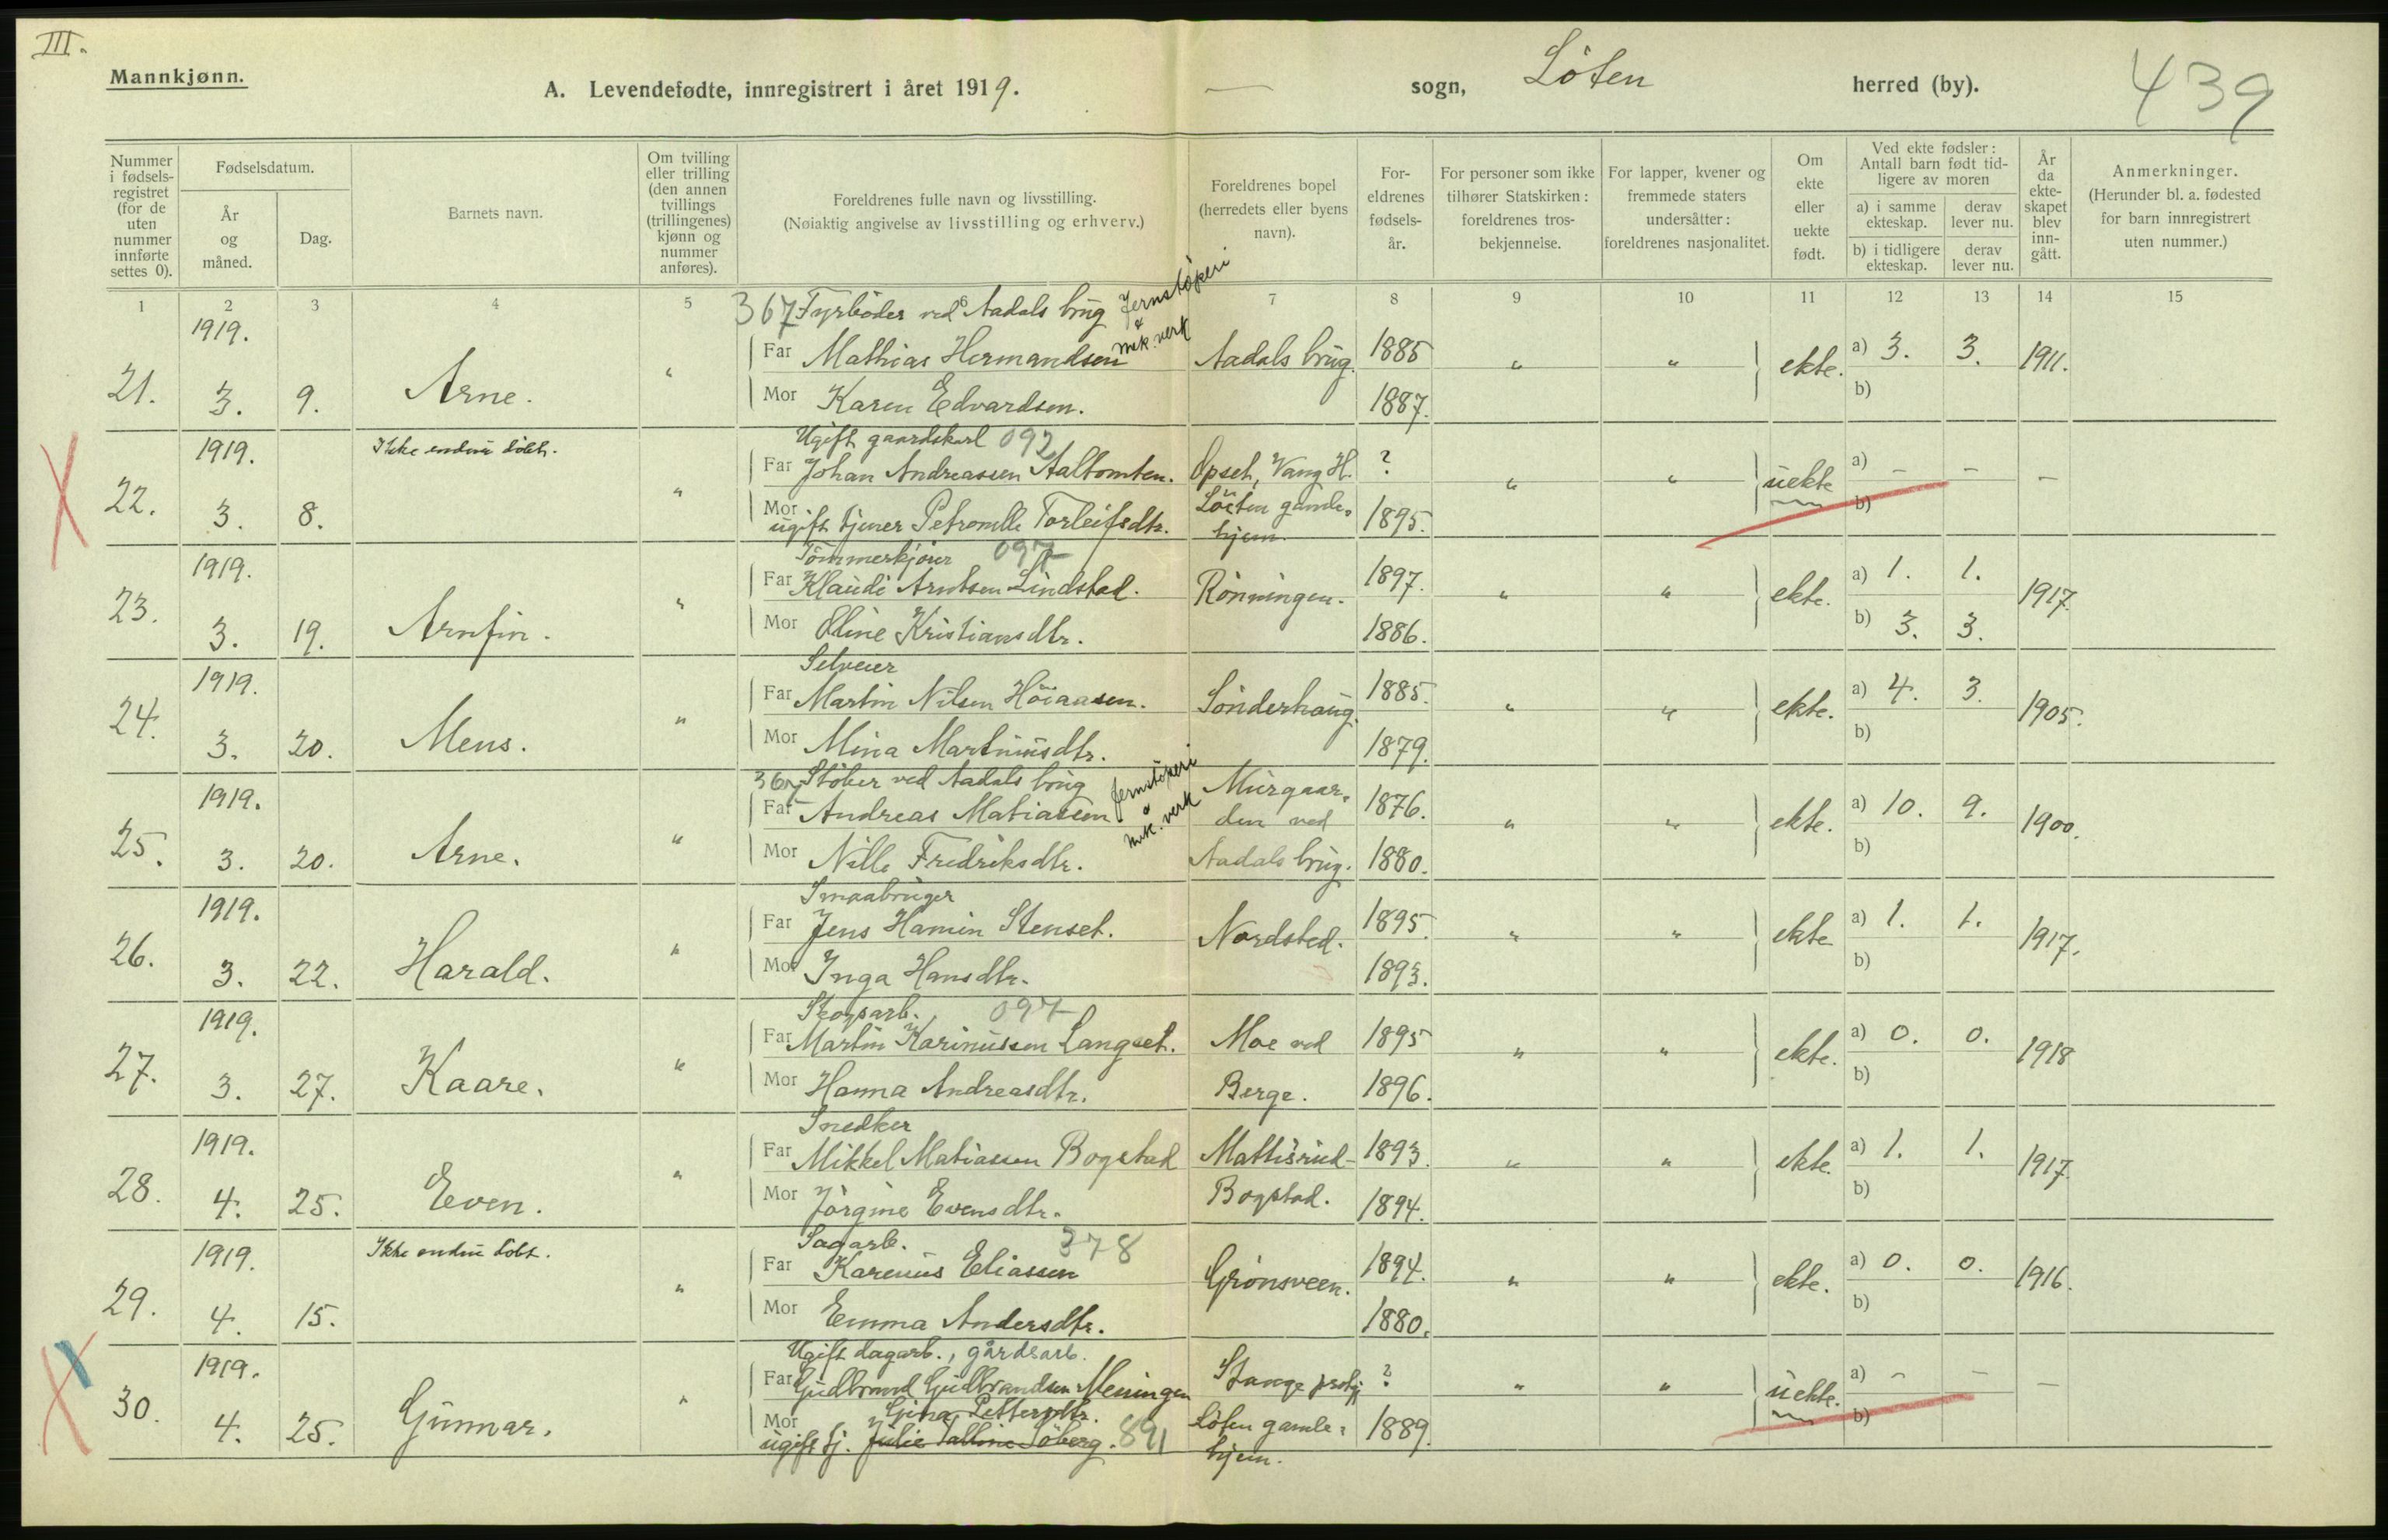 III.
Mannkjønn.
A. Levendefødte, innregistrert i året 1919. — sogn, Löten herred (by).
439
Nummer i fødsels-registret (for de uten nummer innførte settes 0).
Fødselsdatum.
År og måned.
Dag.
Barnets navn.
Om tvilling eller trilling (den annen tvillings (trillingenes) kjønn og nummer anføres).
Foreldrenes fulle navn og livsstilling.
(Nøiaktig angivelse av livsstilling og erhverv.)
Foreldrenes bopel (herredets eller byens navn).
For-eldrenes fødsels-år.
For personer som ikke tilhører Statskirken: foreldrenes tros-bekjennelse.
For lapper, kvener og fremmede staters undersåtter: foreldrenes nasjonalitet.
Om ekte eller uekte født.
Ved ekte fødsler: Antall barn født tid-ligere av moren
a) i samme ekteskap.
derav lever nu.
b) i tidligere ekteskap.
derav lever nu.
År da ekte-skapet blev inn-gått.
Anmerkninger.
(Herunder bl. a. fødested for barn innregistrert uten nummer.)
1 2 3 4 5 6 7 8 9 10 11 12 13 14 15
367 Fyrböder ved Aadals brug Jernstöperi & mek. verk
1919.
21. 3. 9. Arne. "
Far Mathias Hermandsen Aadals brug. 1885 " " ekte. a) 3. 3. 1911.
Mor Karen Edvardsen. 1887. b)
1919. Ikke endnu döbt. Ugift gaardskarl 092
22. 3. 8. "
Far Johan Andreassen Aaltomten. Opset, Vang H. ? " " uekte a) — — —
Mor ugift tjener Petronelle Torleifsdtr. Löiten gamle-hjem. 1895. b)
1919. Tömmerkjörer 097
23. 3. 19. Arnfin. "
Far Klaudi Arntsen Lindstad. Rönningen. 1897. " " ekte. a) 1. 1. 1917.
Mor Oline Kristiansdtr. 1886. b) 3. 3.
1919. Selveier
24. 3. 20. Mens. "
Far Martin Nilsen Höiaasen. Sönderhaug. 1885. " " ekte. a) 4. 3. 1905.
Mor Mina Martinusdtr. 1879. b)
367 Stöber ved Aadals brug Jernstöperi & mek. verk
1919.
25. 3. 20. Arne. "
Far Andreas Matiasen Murgaar-den ved 1876. " " ekte. a) 10. 9. 1900.
Mor Nille Fredriksdtr. Aadals brug. 1880. b)
1919. Smaabruger
26. 3. 22. Harald. "
Far Jens Hamin Stenset. Nordsted. 1895. " " ekte a) 1. 1. 1917.
Mor Inga Hansdtr. 1893. b)
1919. Skogsarb. 097
27. 3. 27. Kaare. "
Far Martin Karinussen Langset. Moe ved 1895 " " ekte. a) 0. 0. 1918
Mor Hanna Andreasdtr. Berge. 1896. b)
1919. Snedker
28. 4. 25. Even. "
Far Mikkel Matiassen Bogstad Mattisrud- 1893. " " ekte. a) 1. 1. 1917.
Mor Jörgine Evensdtr. Bogstad. 1894. b)
1919. Ikke endnu döbt. Sagarb. 378
29. 4. 15. "
Far Karenus Eliassen Grönsveen. 1894. " " ekte. a) 0. 0. 1916.
Mor Emma Andersdtr. 1880. b)
1919. Ugift dagarb., gårdsarb.
30. 4. 25. Gunnar. "
Far Gudbrand Gudbrandsen Meningen Stange ? " " uekte. a) — — —
Mor Gina Pettersdtr.
ugift tj. Julie Talline Söberg. 891 Löten gamle-hjem. 1889. b)